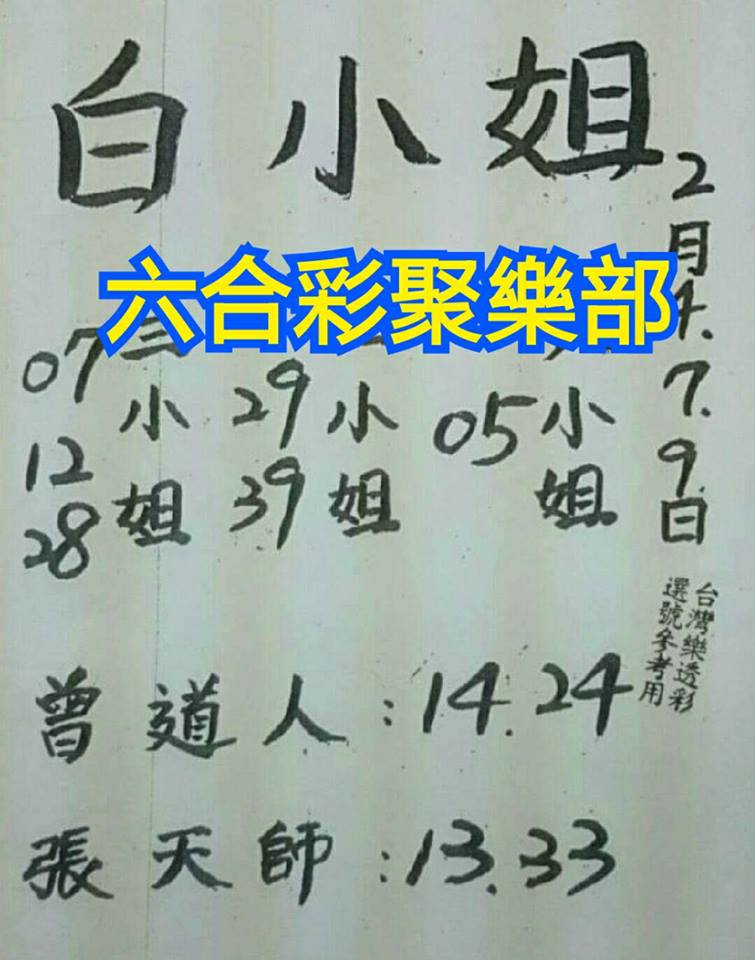 白小姐
六合彩聚樂部
2月4.7.9.日
台灣樂透彩
選號參考用
小姐
05
小姐
29
39
小姐
07
12
28
曾道人:14.24
張天師:13.33